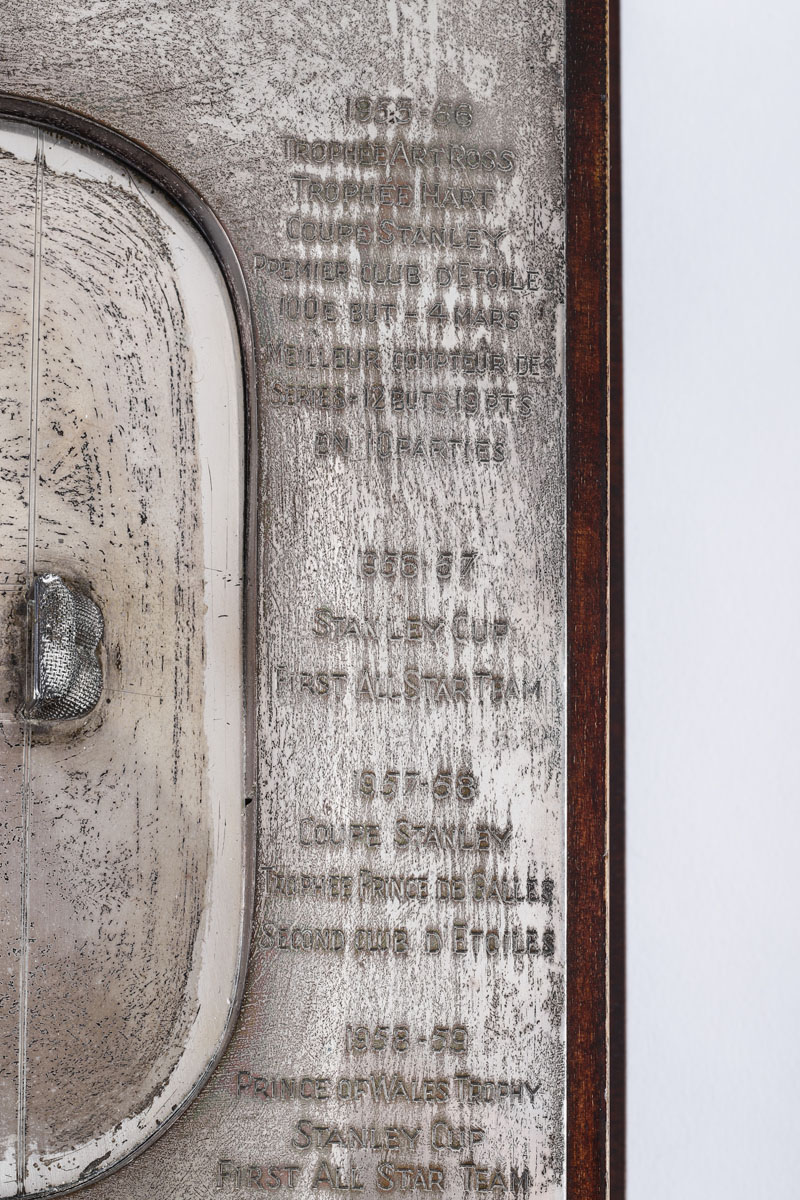 1955-56
TROPHÉE ART ROSS
TROPHÉE HART
COUPE STANLEY
PREMIER CLUB D'ETOILES
100E BUT - 4 MARS
MEILLEUR COMPTEUR DES
SERIES - 12 BUTS 19 PTS
EN 10 PARTIES
1956-57
STANLEY CUP
FIRST ALL STAR TEAM
1957-58
COUPE STANLEY
TROPHÉE PRINCE DE GALLES
SECOND CLUB D'ETOILES
1958-59
PRINCE OF WALES TROPHY
STANLEY CUP
FIRST ALL STAR TEAM